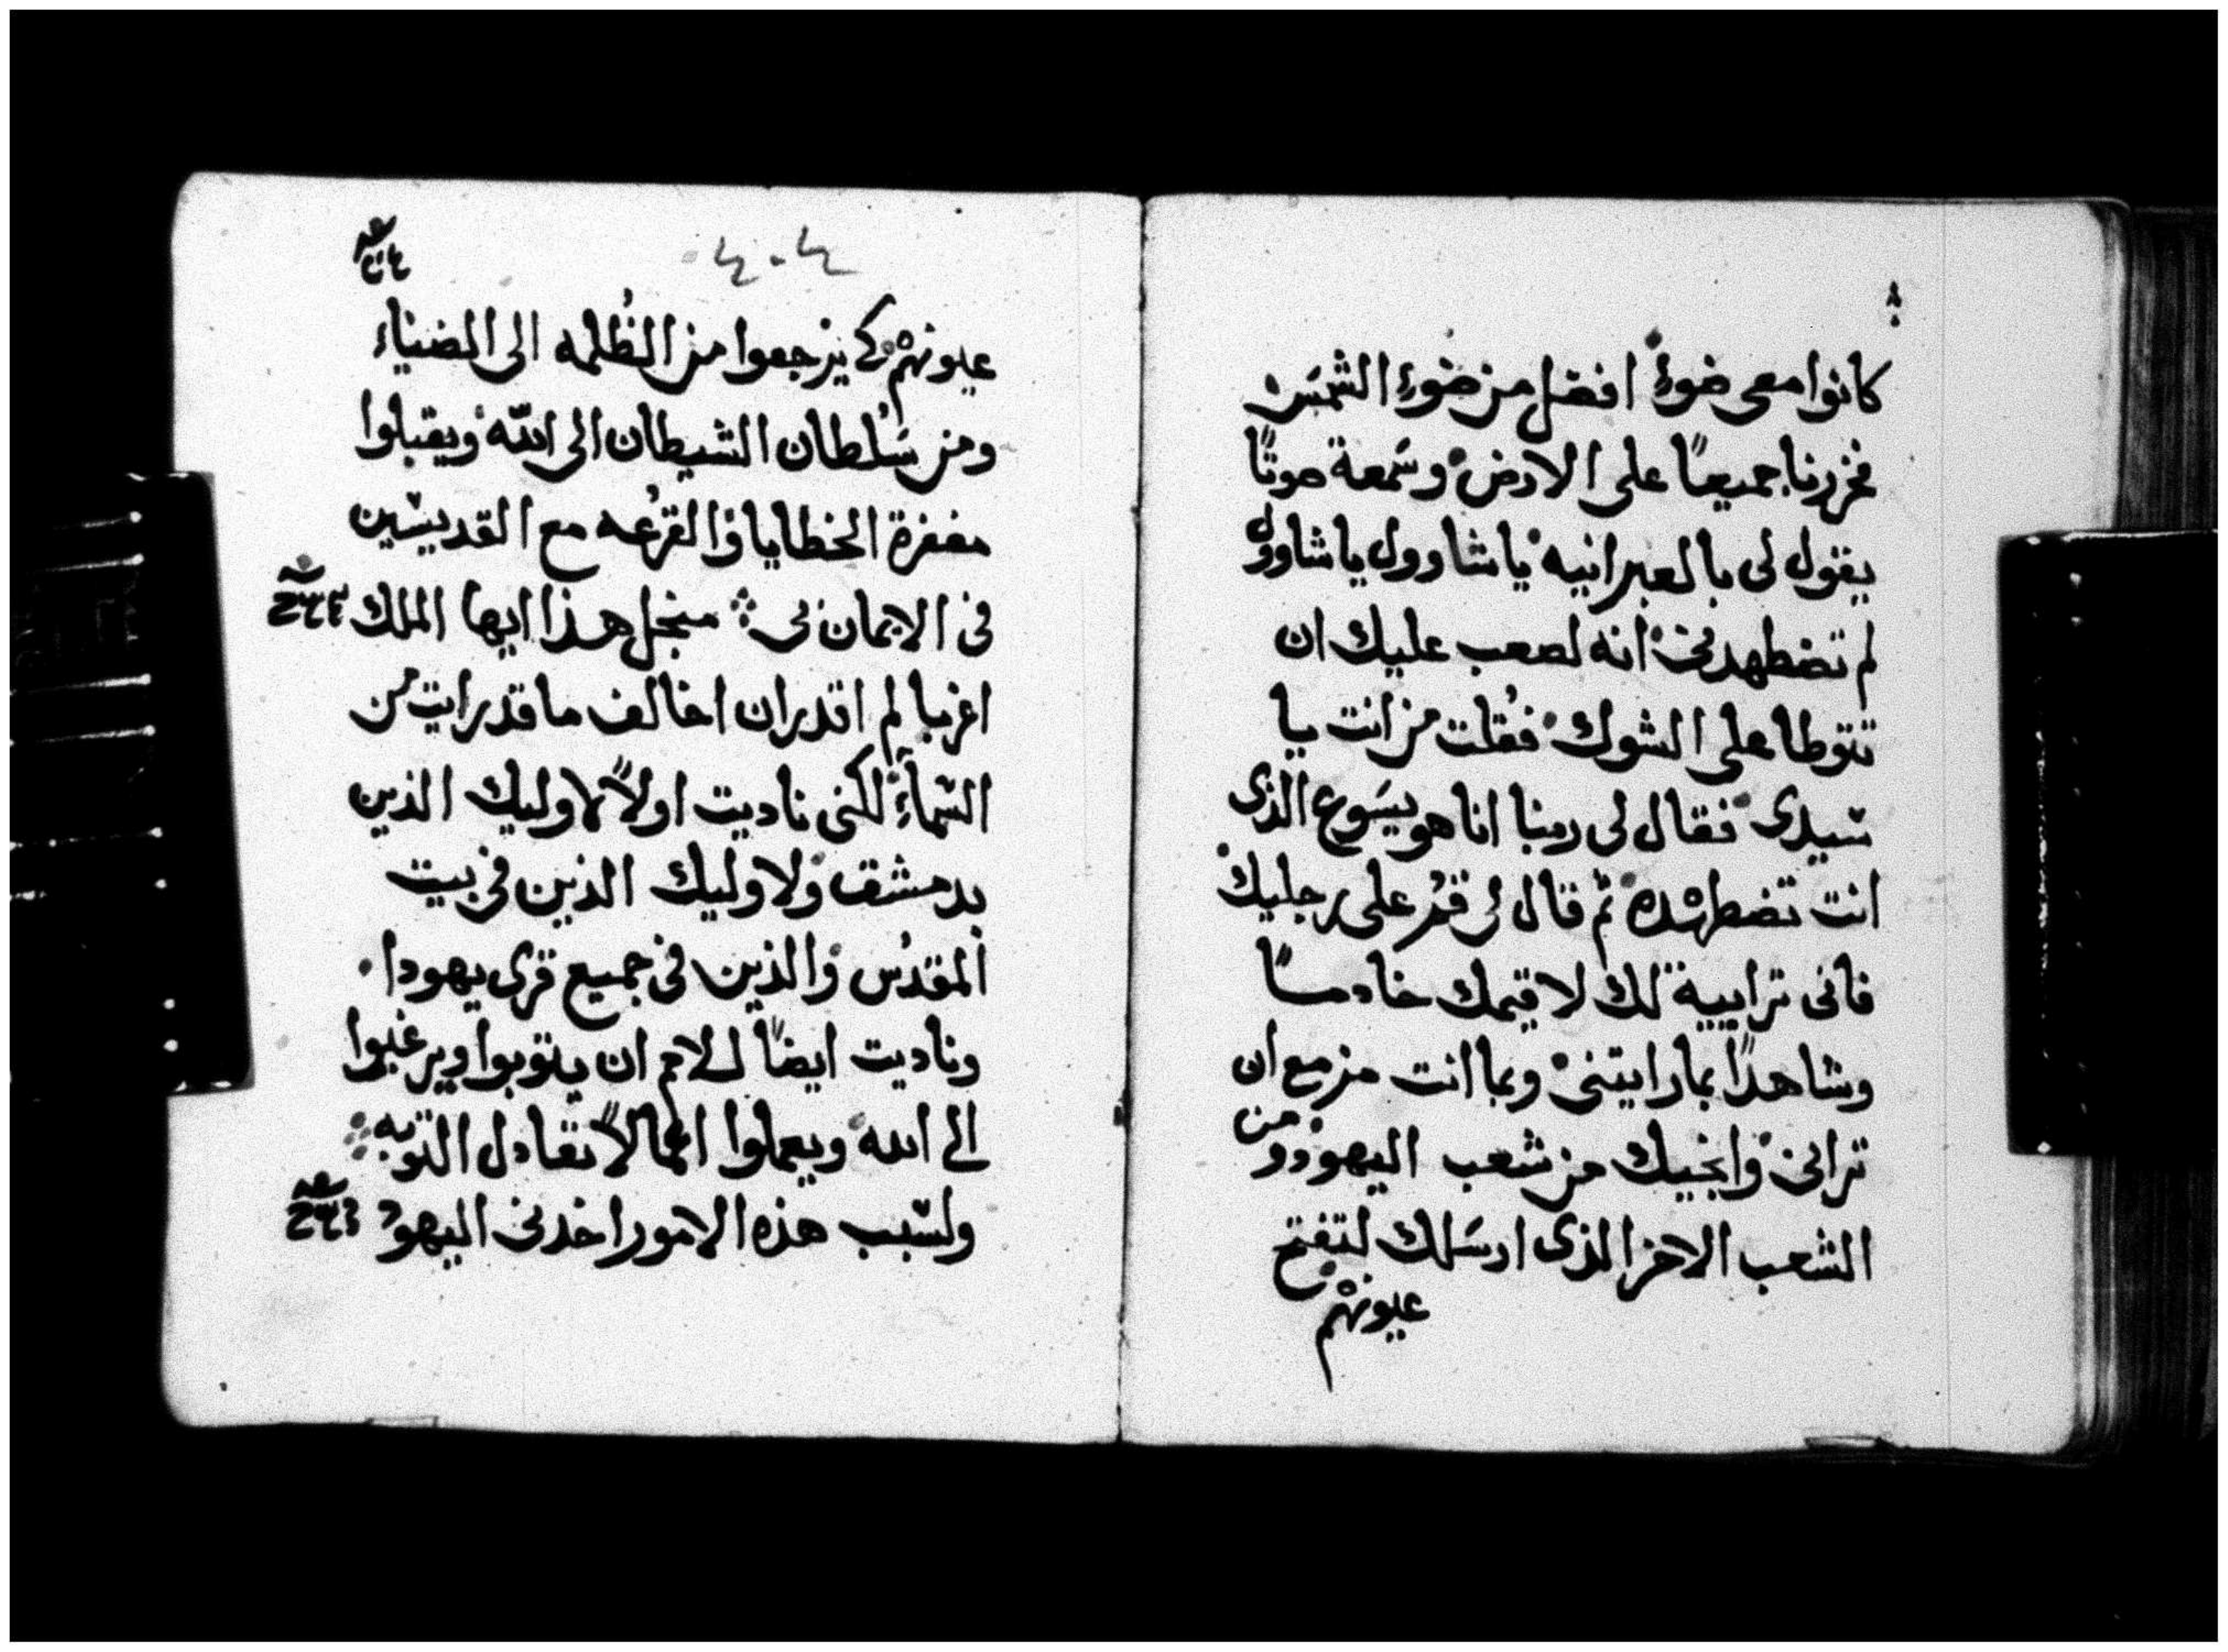 كانوا معى ضوءٌ افضل من ضوءِ الشمسَ
فخررنا جميعًا على الارض وسَمعة صوتًا
يقول لى بالعبرانيه يا شاوول يا شاوول
لم تضطهدنى انه لصعب عليك ان
تتوطا على الشوك فقُلت من انت يا
سيدى فقال لى ربنا انا هو يسَوع الذى
انت تضطهدْه ثم قال لى قمُ على رجليك
فانى ترايية لك لاقيمك خادمًا
وشاهدًا بما رايتنى وبما انت مزمع ان
ترانى وانجيك من شعب اليهود ومن
الشعب الاخر الذى ارسَلك لتفتح
عيونهمْ
٤٠٤
عيونهمْ كى يرجعوا من الظُلمه الى الضياء
ومن سَُلطان الشيطان الى الله ويقبلوا
مغفرة الخطايا والقرُعه مع القديسين
فى الايمان بى منجل هذا ايها الملك
اغربا لم اقدر ان اخالف ما قد رايت من
السماءِ لكنى ناديت اولاً لاوليك الذين
بدمشق ولاوليك الذين فى بيت
المقدُس والذين فى جميع قرى يهودا
وناديت ايضاً للامم ان يتوبوا ويرغبوا
الى الله ويعملوا اعمالاً تعادل التوبه
ولسَبب هذه الامور اخدنى اليهود